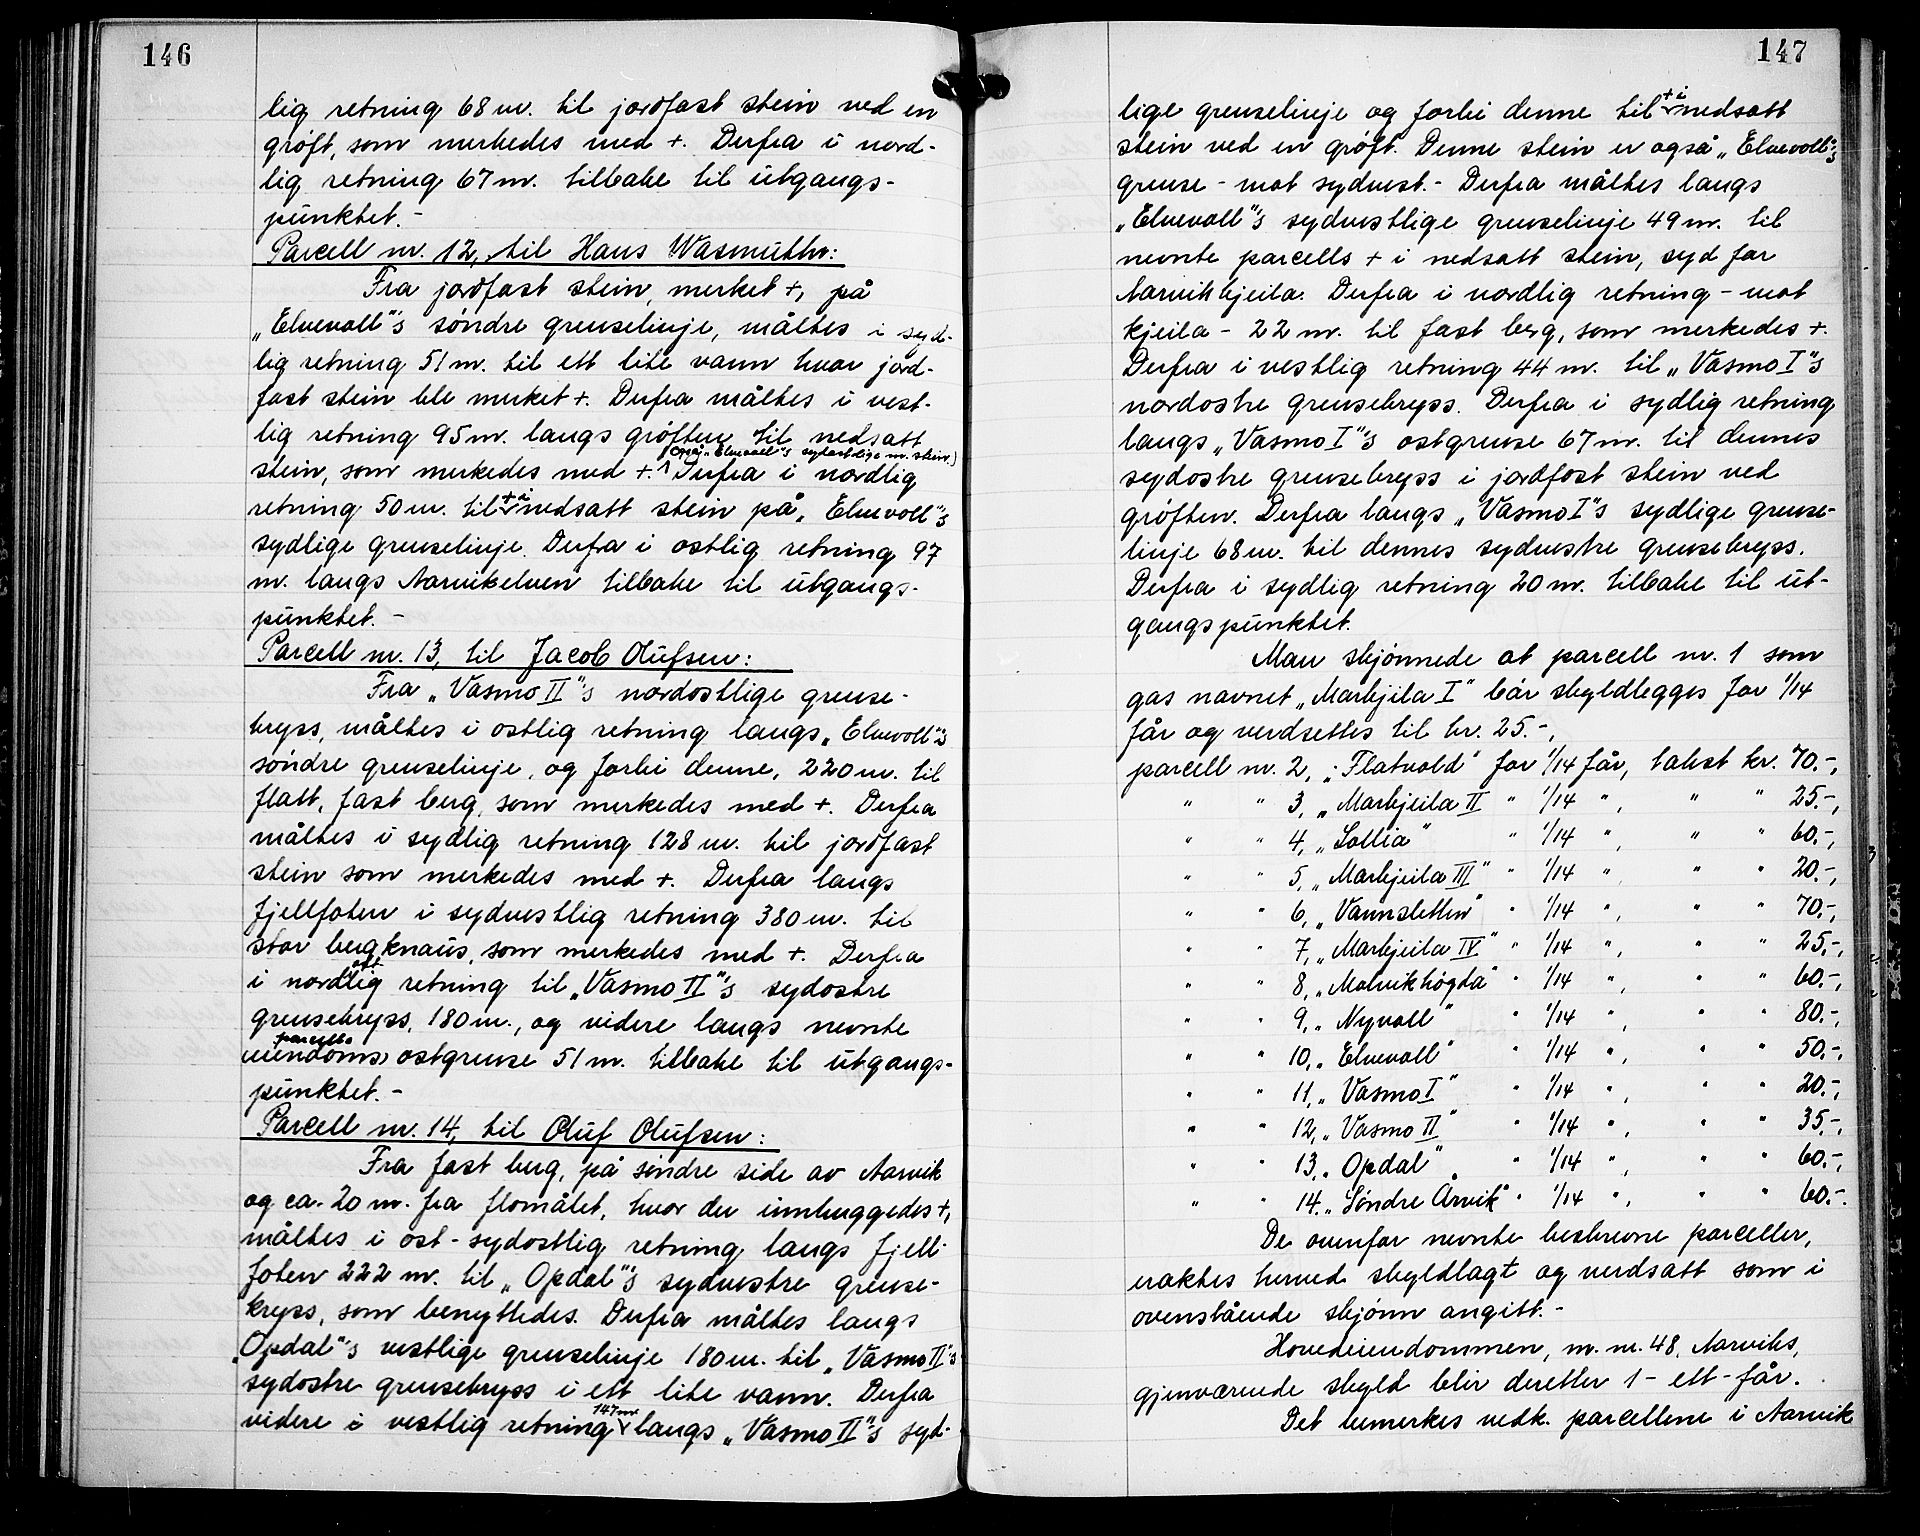 146
lig retning 68 m. til jordfast stein ved en
grøft, som merkedes med +. Derfra i nord-
lig retning 67 m. tilbake til utgangs-
punktet.-
Parcell nr. 12, til Hans Wasmuth:
Fra jordfast stein, merket +, på
„Elvevoll"s søndre grenselinje, måltes i syd-
lig retning 51 m. til ett lite vann hvor jord-
fast stein ble merket +. Derfra måltes i vest-
lig retning 95 m. langs grøften til nedsatt
(også „Elvevoll"s sydostlige m. stein.)
stein, som merkedes med +. Derfra i nordlig
retning 50 m. til + i nedsatt stein på „Elvevoll"s
sydlige grenselinje. Derfra i ostlig retning 97
m. langs Aarvikelven tilbake til utgangs-
punktet.-
Parcell nr. 13, til Jacob Olufsen:
Fra „Vasmo II"s nordostlige grense-
kryss, måltes i ostlig retning langs „Elvevoll"s
søndre grenselinje, og forbi denne, 220 m. til
flatt, fast berg, som merkedes med +. Derfra
måltes i sydlig retning 128 m. til jordfast
stein som merkedes med +. Derfra langs
fjellfoten i sydvestlig retning 380 m. til
stor bergknaus, som merkedes med +. Derfra
ost
i nordlig retning til „Vasmo II"s sydostre
grensekryss, 180 m., og videre langs nevnte
parcells
eiendoms ostgrense 51 m. tilbake til utgangs-
punktet.-
Parcell nr. 14, til Oluf Olufsen:
Fra fast berg, på søndre side av Aarvik
og ca. 20 m. fra flomålet, hvor der innhuggedes +,
måltes i ost-sydostlig retning langs fjell-
foten 222 m. til „Opdal"s sydvestre grense-
kryss, som benyttedes. Derfra måltes langs
„Opdal"s vestlige grenselinje 180 m. til „Vasmo II"s
sydostre grensekryss i ett lite vann. Derfra
videre i vestlig retning 147 m. langs „Vasmo II"s syd-
147
lige grenselinje og forbi denne til + i nedsatt
stein ved en grøft. Denne stein er også „Elvevoll"s
grense - mot sydvest.- Derfra måltes langs
„Elvevoll"s sydvestlige grenselinje 49 m. til
nevnte parcells + i nedsatt stein, syd for
Aarvikkjeila. Derfra i nordlig retning - mot
kjeila - 22 m. til fast berg, som merkedes +.
Derfra i vestlig retning 44 m. til „Vasmo I"s
nordostre grensekryss. Derfra i sydlig retning
langs „Vasmo I"s ostgrense 67 m. til dennes
sydostre grensekryss i jordfast stein ved
grøften. Derfra langs „Vasmo I"s sydlige grense-
linje 68 m. til dennes sydvestre grensekryss.
Derfra i sydlig retning 20 m. tilbake til ut-
gangspunktet.
Man skjønnede at parcell nr. 1 som
gas navnet „Markjeila I" bør skyldlegges for 1/14
får og verdsettes til kr. 25.-,
parcell nr. 2, „Flatvold" for 1/14 får, takst kr. 70.-,
" " 3, „Markjeila II " 1/14 ", " " 25.-,
" " 4, „Sollia" " 1/14 ", " " 60.-,
" " 5, „Markjeila III" " 1/14 ", " " 20.-,
" " 6, „Vannsletten" " 1/14 ", " " 70.-,
" " 7, „Markjeila IV" " 1/14 ", " " 25.-,
" " 8, „Molvikhøgda" " 1/14 ", " " 60.-,
" " 9, „Nyvoll" " 1/14 ", " " 80.-,
" " 10, „Elvevoll" " 1/14 ", " " 50.-,
" " 11, „Vasmo I" " 1/14 ", " " 20.-,
" " 12, „Vasmo II" " 1/14 ", " " 35.-,
" " 13, „Opdal" " 1/14 ", " " 60.-,
" " 14, „Søndre Årvik" " 1/14 ", " " 60.-.
De ovenfor nevnte beskrevne parceller,
eraktes herved skyldlagt og verdsatt som i
ovenstående skjønn angitt.-
Hovedeiendommen, m. nr. 48, Aarviks,
gjenværende skyld blir deretter 1- ett - får.
Det bemerkes vedk. parcellene i Aarvik